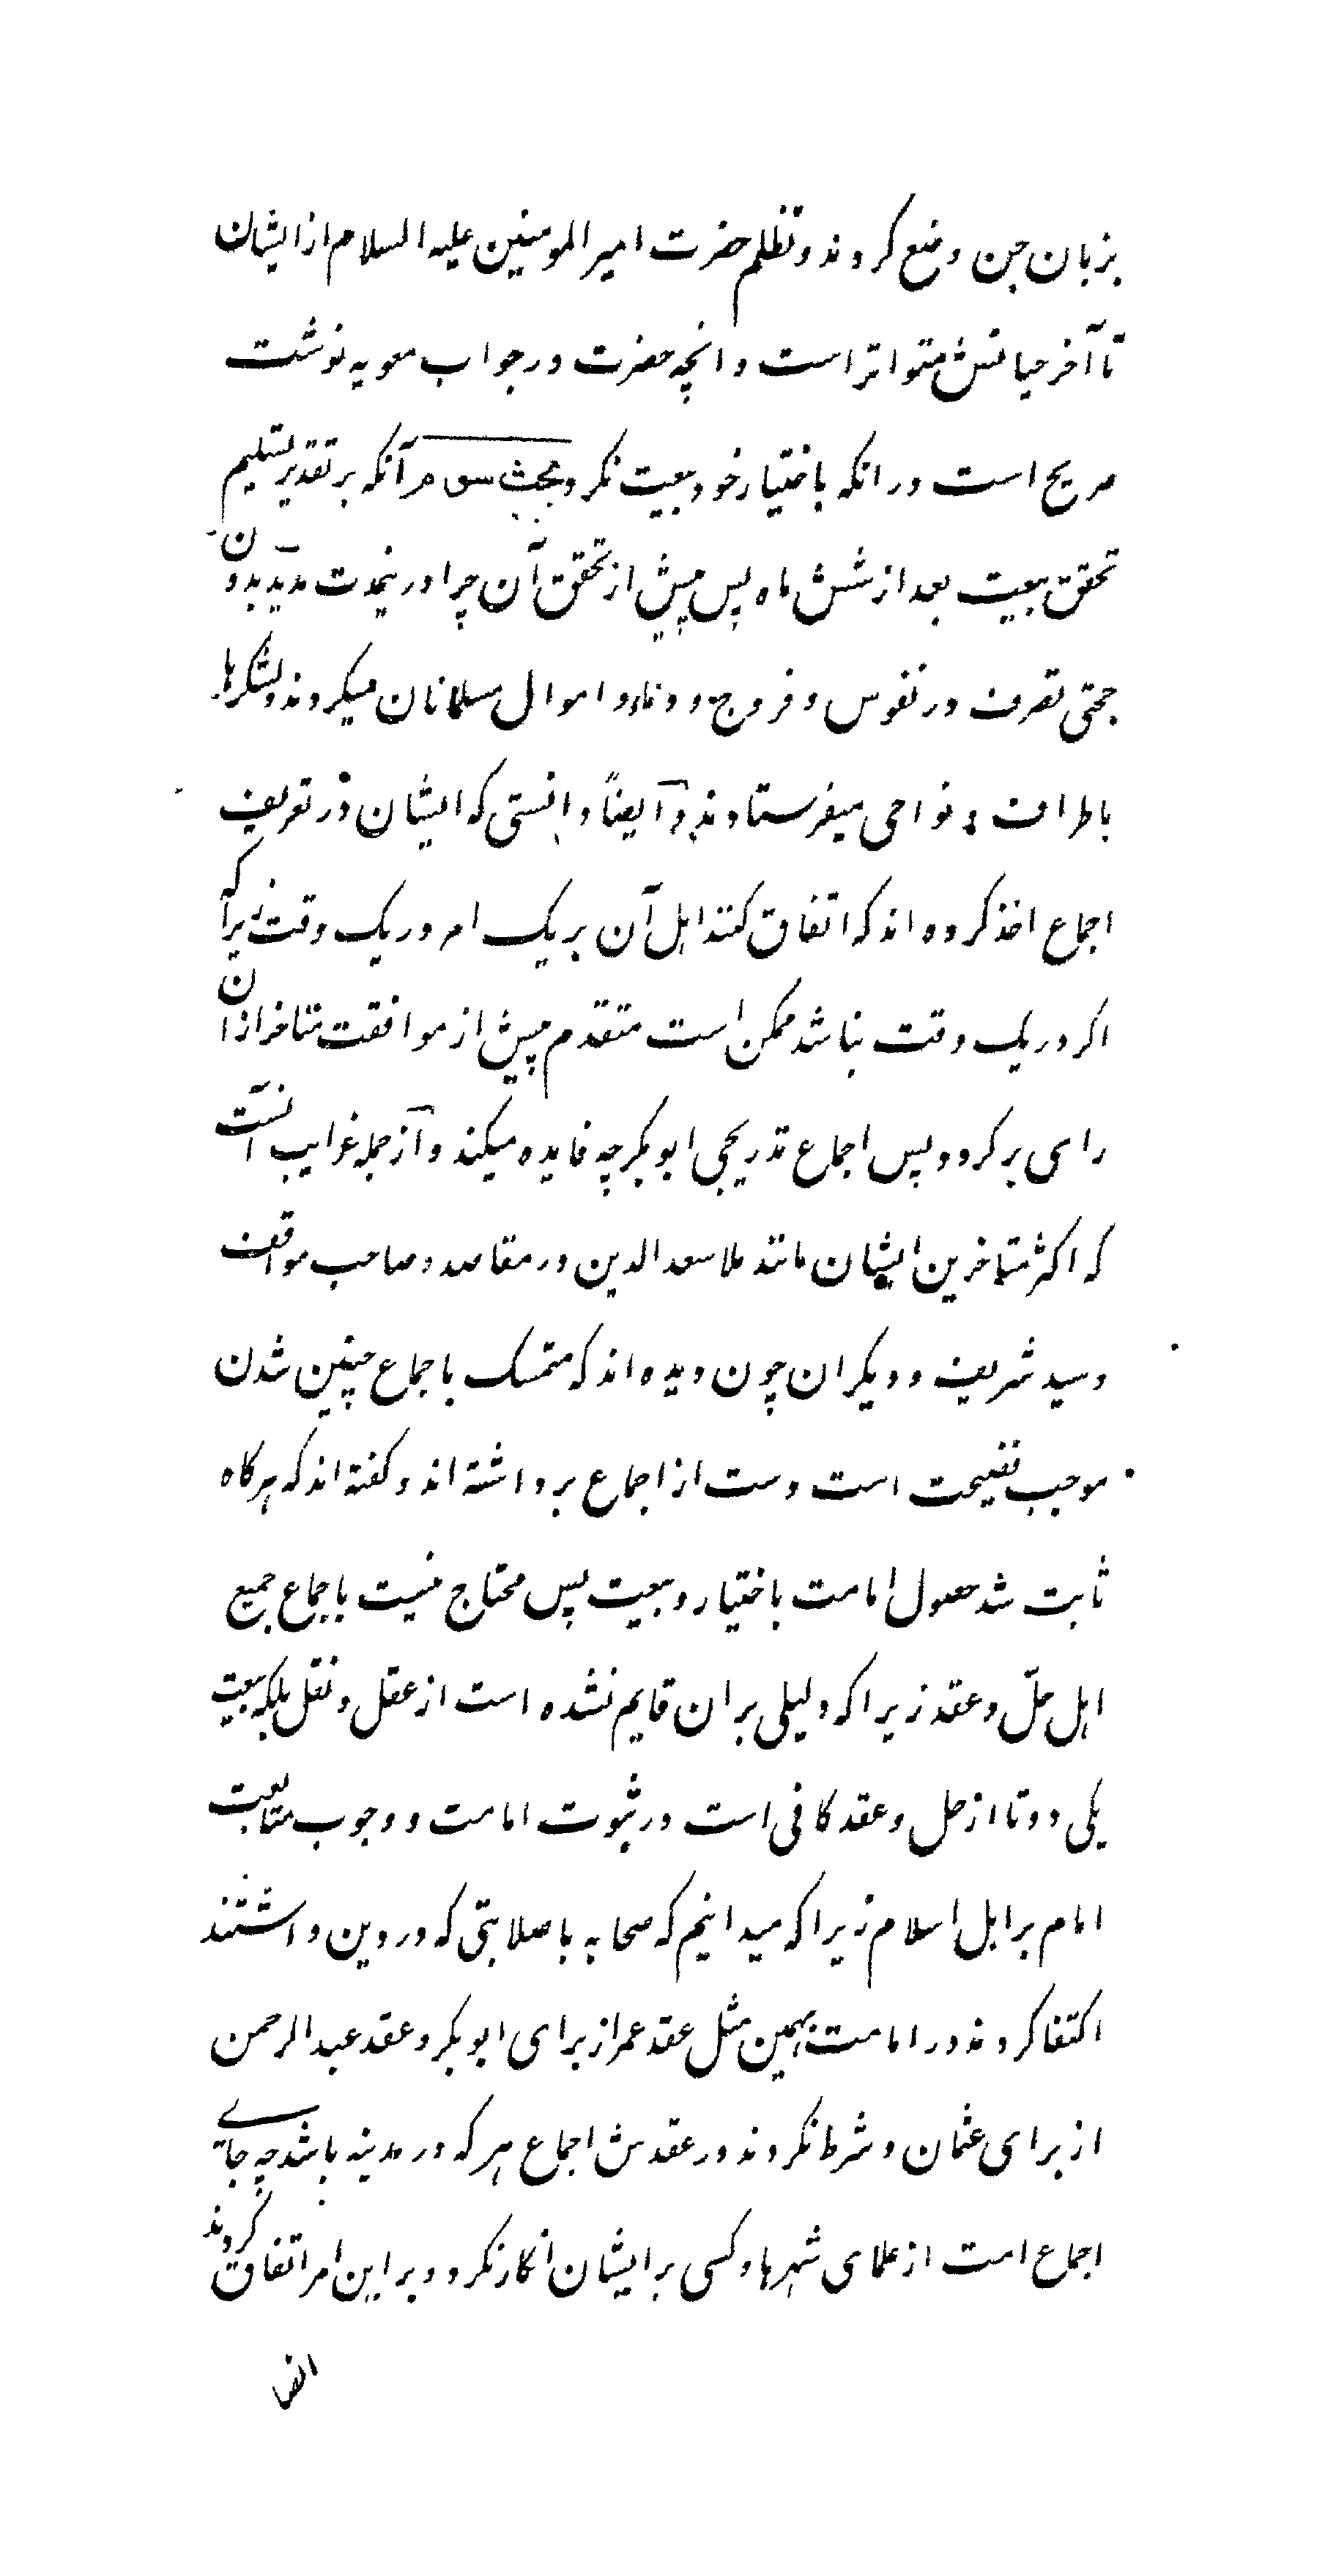 بزبان جن وضع کردند و تظلم حضرت امیر المومنین علیه السلام از ایشان
تا آخر حیاتش متواتر است و انچه حضرت در جواب معویه نوشت
صریح است در انکه باختیار خود بیعت نکرد بحث سوم آنکه بر تقدیر تسلیم
تحقق بیعت بعد از شش ماه پس پیش از تحقق آن چرا در ینمدت مدید بدون
حجتی تصرف در نفوس و فروج و دماء و اموال مسلمانان میکردند و لشکرها
باطراف و نواحی میفرستادند و ایضاً دانستی که ایشان در تعریف
اجماع اخذ کرده اند که اتفاق کنند اهل آن بر یک امر در یک وقت زیرا که
اکر در یک وقت نباشد ممکن است متقدم پیش از موافقت متاخر ازان
رای بر کردد پس اجماع تدریجی ابو بکر چه فایده میکند و از جمله غرایب انست
که اکثر متاخرین ایشان مانند ملا سعد الدین در مقاصد و صاحب مواقف
و سید شریف و دیکران چون دیده اند که متمسک باجماع چنین شدن
موجب فضیحت است دست از اجماع برداشته اند و کفته اند که هرکاه
ثابت شد حصول امامت باختیار و بیعت پس محتاج نیست باجماع جمیع
اهل حلّ و عقد زیرا که دلیلی بران قایم نشده است از عقل و نقل بلکه بیعت
یکی دو تا از حل و عقد کافی است در ثبوت امامت و وجوب متابعت
امام بر اهل اسلام زیرا که میدانیم که صحابه با صلابتی که در دین داشتند
اکتفا کردند در امامت بهمین مثل عقد عمر از برای ابو بکر و عقد عبد الرحمن
از برای عثمان و شرط نکردند در عقدش اجماع هر که در مدینه باشد چه جای
اجماع امت از علمای شهرها و کسی بر ایشان انکار نکرد و بر این امر اتفاق کردند